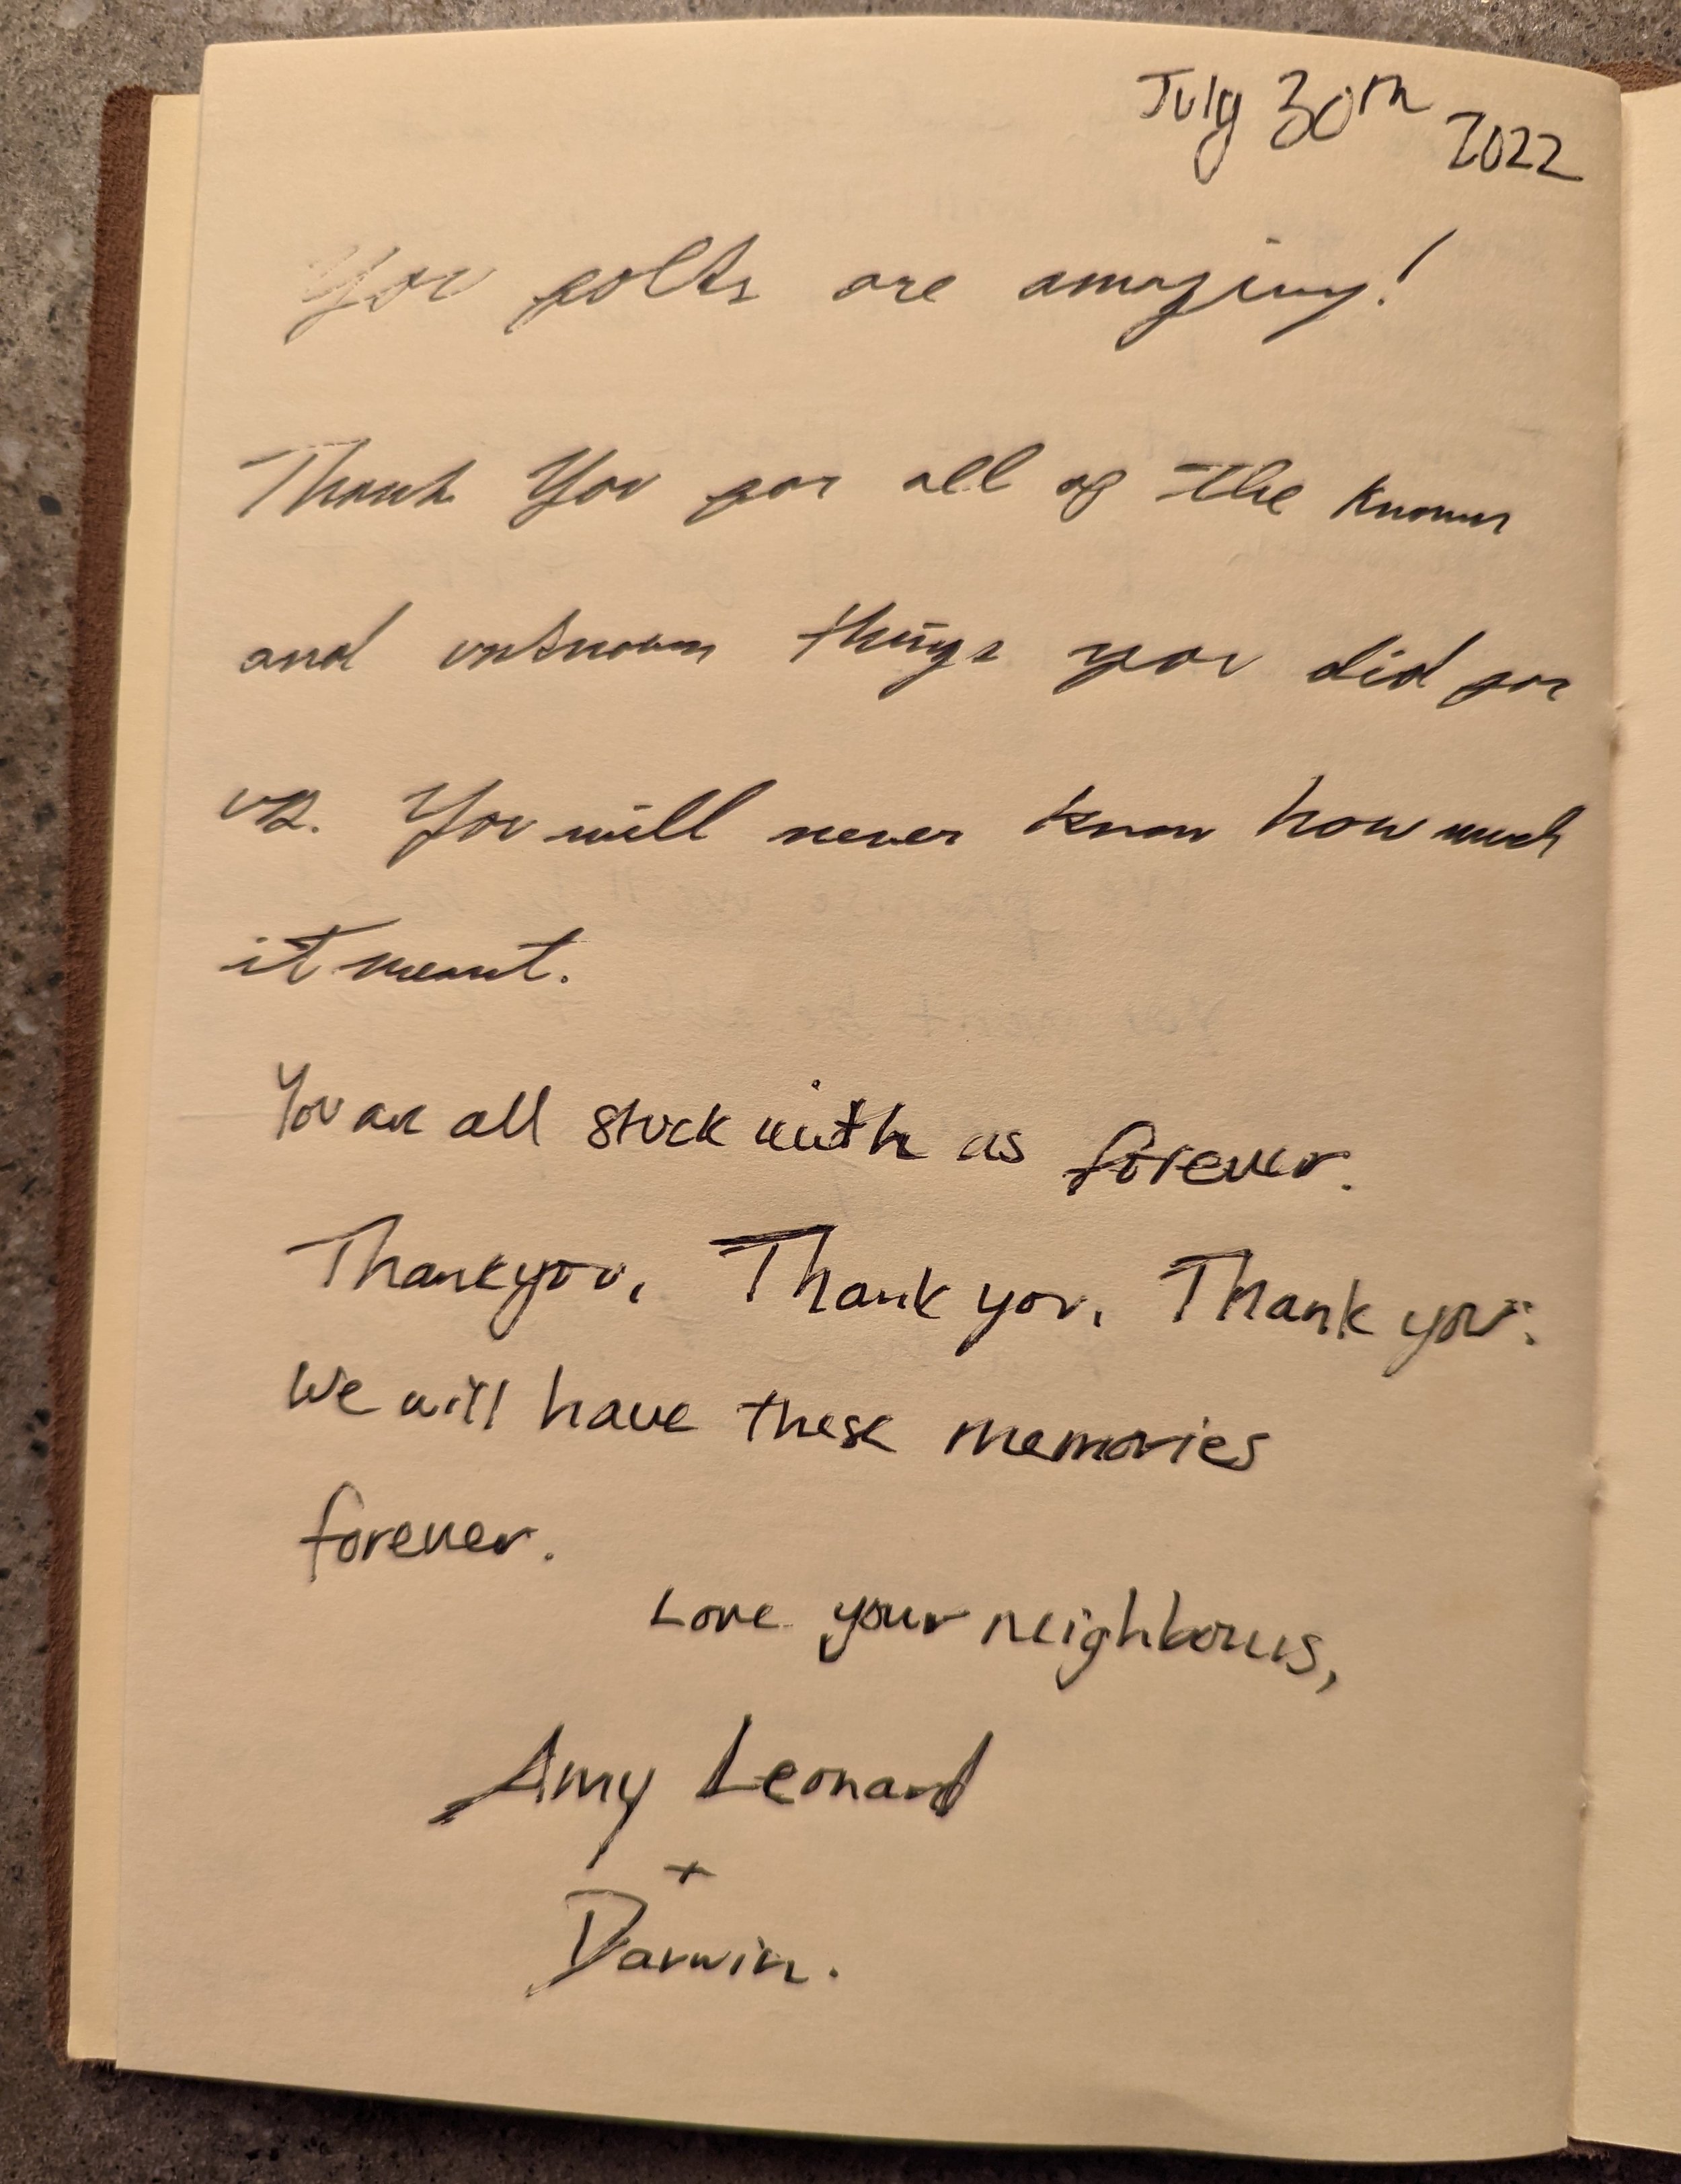 July 30th 2022
You folks are amazing!
Thank You for all of the known
and unknown things you did for
us. You will never know how much
it meant.
You are all stuck with us forever.
Thankyou, Thank you, Thank you.
We will have these memories
forever.
Love your neighbours,
Amy Leonard
+
Darwin.